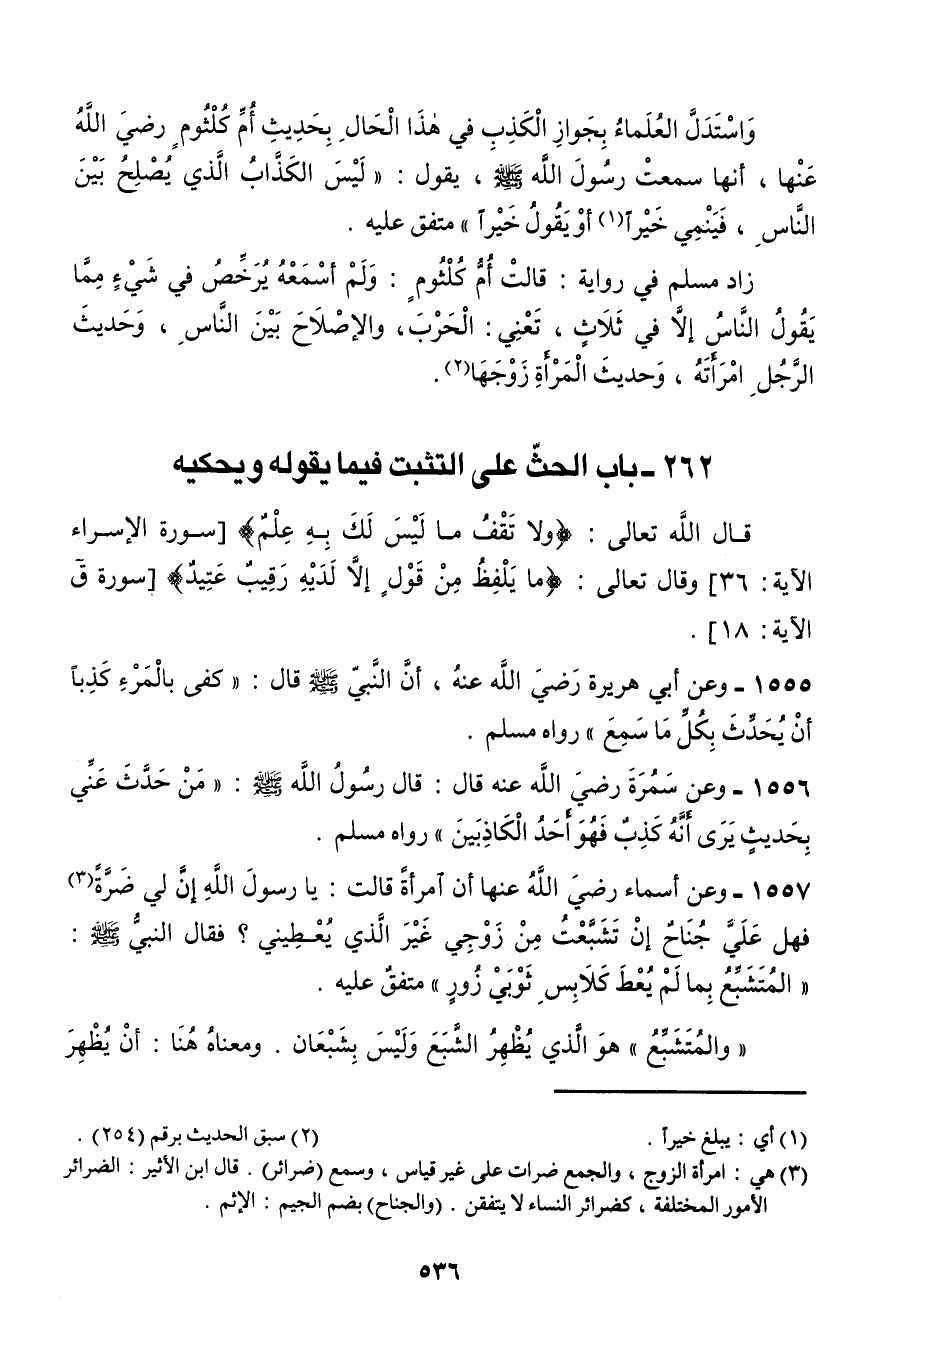 وَاسْتَدَلَّ العُلَماءُ بِجَوازِ الْكَذِبِ في هٰذَا الْحَالِ بِحَدِيثِ أُمِّ كُلْثُومٍ رضيَ اللَّهُ
عَنْها ، أنها سمعتْ رسُولَ الله ﷺ ، يقول : « لَيْسَ الكَذَّابُ الَّذي يُصْلِحُ بَيْنَ
النَّاسِ ، فَيَنْمِي خَيْراً(١) أوْ يَقُولُ خَيْراً » متفق عليه .
زاد مسلم في رواية : قالتْ أُمُّ كُلْثُومٍ : وَلَمْ أسْمَعْهُ يُرَخِّصُ في شَيْءٍ مِمَّا
يَقُولُ النَّاسُ إلَّا في ثَلَاثٍ ، تَعْنِي : الْحَرْبَ، والإصْلَاحَ بَيْنَ النَّاسِ ، وَحَديثَ
الرَّجُلِ امْرَأَتَهُ ، وَحديثَ الْمَرْأةِ زَوْجَهَا(٢).
٢٦٢ ـ باب الحثّ على التثبت فيما يقوله ويحكيه
قـال اللَّه تعالى : ﴿ولا تَقْفُ مـا لَيْسَ لَكَ بِـهِ عِلْمٌ﴾ [سـورة الإسـراء
الآية: ٣٦] وقال تعالى : ﴿ما يَلْفِظُ مِنْ قَوْلٍ إلَّا لَدَيْهِ رَقِيبٌ عَتِيدٌ﴾ [سورة قَ
الآية: ١٨] .
١٥٥٥ ـ وعن أبي هريرة رَضيَ اللَّه عنهُ ، أنَّ النَّبيّ ﷺ قال : « كفى بالْمَرْءِ كَذِباً
أنْ يُحَدِّثَ بِكُلِّ مَا سَمِعَ » رواه مسلم .
١٥٥٦ ـ وعن سَمُرَةَ رضيَ اللَّه عنه قال : قال رسُولُ اللَّه ﷺ : « مَنْ حَدَّثَ عَنِّي
بِحَديثٍ يَرَى أنَّهُ كَذِبٌ فَهُوَ أحَدُ الْكَاذِبَينَ » رواه مسلم .
١٥٥٧ ـ وعن أسماء رضيَ اللَّهُ عنها أن آمرأةً قالت : يا رسولَ اللَّهِ إنَّ لي ضَرَّةً(٣)
فهل عَلَيَّ جُنَاحٌ إنْ تَشَبَّعْتُ مِنْ زَوْجِي غَيْرَ الَّذي يُعْـطِيني ؟ فقال النبيُّ ﷺ :
« المُتَشَبِّعُ بِما لَمْ يُعْطَ كَلَابِسِ ثَوْبَيْ زُورٍ » متفقٌ عليه .
« والمُتَشَبِّعُ » هوَ الَّذي يُظْهِرُ الشَّبَعَ وَلَيْسَ بِشَبْعَان . ومعناهُ هُنَا : أنْ يُظْهِرَ
(١) أي : يبلغ خيراً . (٢) سبق الحديث برقم (٢٥٤) .
(٣) هي : امرأة الزوج ، والجمع ضرات على غير قياس ، وسمع (ضرائر) . قال ابن الأثير : الضرائر
الأمور المختلفة ، كضرائر النساء لا يتفقن . (والجناح) بضم الجيم : الإثم .
٥٣٦